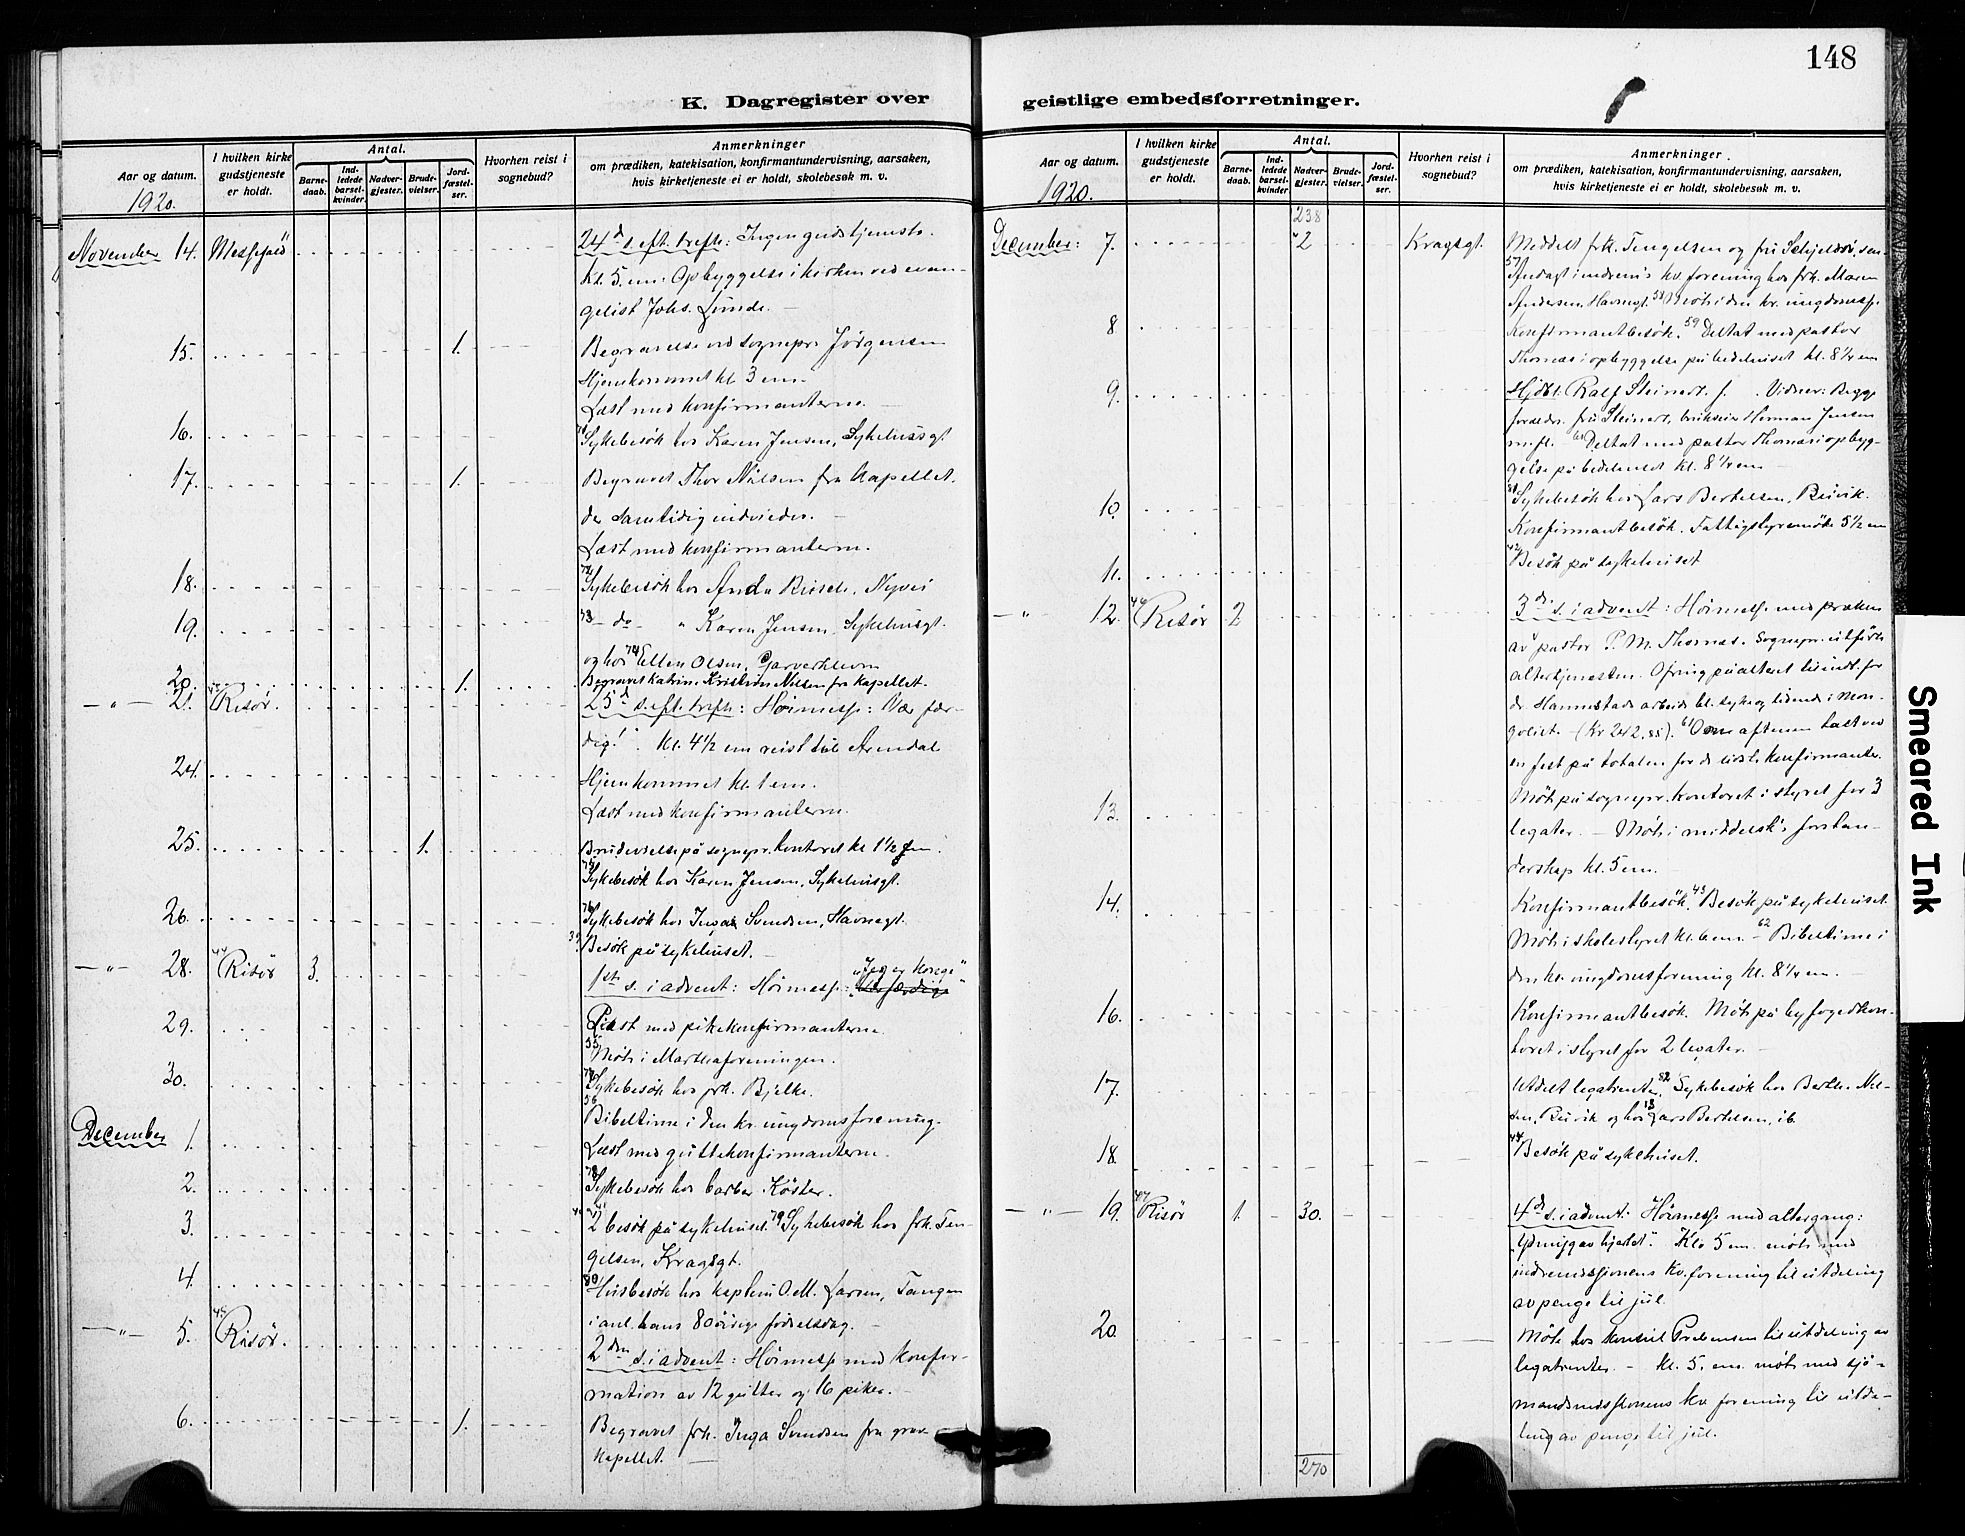 148
K. Dagregister over geistlige embedsforretninger.
Aar og datum.
1920.
I hvilken kirke gudstjeneste er holdt.
Antal.
Barnedaab.
Indledede barselkvinder.
Nadvergjester.
Brudevielser.
Jordfæstelser.
Hvorhen reist i sognebud?
Anmerkninger
om prædiken, katekisation, konfirmantundervisning, aarsaken,
hvis kirketjeneste ei er holdt, skolebesøk m. v.
November 14. Messefald 24d s. eft. trefh: Ingen gudstjeneste.
Kl. 5. em: Opbyggelse i kirken ved evan-
gelist Johs. Lunde. —
15. 1. Begravelse ved sognepr. Jørgensen
Hjemkommet kl 3 em.
Læst med konfirmanterne. —
16. Sykebesøk hos Karen Jensen, Sykehusgt.
17. 1. Begravet Thor Nilsen fra kapellet,
der samtidig indviedes. —
Læst med konfirmanterne.
18. 72 Sykebesøk hos Nyvei
19. 73 – do – " Karen Jensen, Sykehusgt.
og hos 74 Ellen Olsen,
20. 1. Begravet Katrine Kristine Nilsen fra kapellet.
— " — 21. Risør. 25d s. eft. trefh: Høimesse: Vær fær-
dig!". Kl. 4 1/2 em reist til Arendal
24. Hjemkommet kl. 1 em.
Læst med konfirmanterne.
25. 1. Brudevielse på sognepr. kontoret kl 1 1/2 em.
75 Sykebesøk hos Karen Jensen, Sykehusgt.
26. 76 Sykebesøk hos Inga Svendsen, Havnegt.
Besøk på sykehuset. —
— " — 28. 44 Risør 3. 1ste s. i advent: Høimesse: "Jeg er konge"
29. Læst med pikekonfirmanterne.
55 Møte i Marthaforeningen.
30. Sykebesøk hos frk. Bjelke.
56
Bibeltime i den kr. ungdomsforening.
December 1. Læst med guttekonfirmanterne.
2. 78 Sykebesøk hos barber Köster.
3. 2 besøk på sykehuset. 79 Sykebesøk hos frk. Ten-
gelsen, Kragsgt.
4. 80 Husbesøk hos kaptein O. M. Larsen, Tangen
i anl. hans 80 årige fødselsdag. —
— " — 5. 45 Risør. 2den s. i advent: Høimesse med konfir-
mation av 12 gutter og 16 piker. —
6. 1. Begravet frk. Inga Svendsen fra grav-
kapellet. —
Aar og datum.
1920.
I hvilken kirke gudstjeneste er holdt.
Antal.
Barnedaab.
Indledede barselkvinder.
Nadvergjester.
Brudevielser.
Jordfæstelser.
Hvorhen reist i sognebud?
Anmerkninger
om prædiken, katekisation, konfirmantundervisning, aarsaken,
hvis kirketjeneste ei er holdt, skolebesøk m. v.
238
December: 7. 2 Kragsgt. Meddelt frk. Tengelsen og fru
57 Andagt i indrem's kv. forening hos frk. Maren
Andersen, Havnegt. 58 Møte i den kr. ungdomsf.
8 Konfirmantbesøk. 59 Deltat med pastor
Thornæs i opbyggelse på bedehuset kl. 8 1/4 em
9. Hjdbt. Ralf Steinert. f. . Vidner: Begge
forældre. fru Steinert, Herman Jensen
m. fl. 60 Deltat med pastor Thornæs i opbyg-
gelse på bedehuset kl. 8 1/4 em —
10. 81 Sykebesøk hos Lars Bertelsen, Buvik.
Konfirmantbesøk. Fattigstyremöte 5 1/2 em
11. 42 Besøk på sykehuset
— " — 12. 46 Risør 2 3die s. i advent: Høimesse med præken
av pastor P. M. Thornæs. Sognepr. utførte
altertjenesten. Ofring på alteret til indt. for
dr. Hannestads arbeide bl. syke og lidende i Mon-
goliet. – (Kr 242,85). 61 Om aftenen talt ved
en fest på totalen for de sidste konfirmanter.
13. Møte på sognepr. kontoret i styret for 3
legater. — Møte i middelsk's forstan-
derskap kl. 5 em. —
14. Konfirmantbesøk. 43 Besøk på sykehuset.
Møte i skolestyret kl. 6 em. – 62 Bibeltime i
den kr. ungdomsforening kl. 8 1/4 em. —
16. Konfirmantbesøk. Møte på byfogedkon-
toret i styret for 2 legater. —
17. Utdelt legatrente. 82 Sykebesøk hos Berth. Nil-
sen, Buvik og hos 83 Lars Bertelsen, ib.
18. 44 Besøk på sykehuset.
— " — 19. 47 Risør 1. 30. 4de s. i advent: Høimesse med altergang:
av hjertet". Kl. 5 em. møte med
indremissionens kv. forening til utdeling
av penge til jul.
20. Møte hos konsul Prebensen til utdeling av
legatrenter. — Kl. 5. em. møte med sjö-
mandsmissionens kv. forening til utde-
ling av penge til jul.
270
Smeared Ink